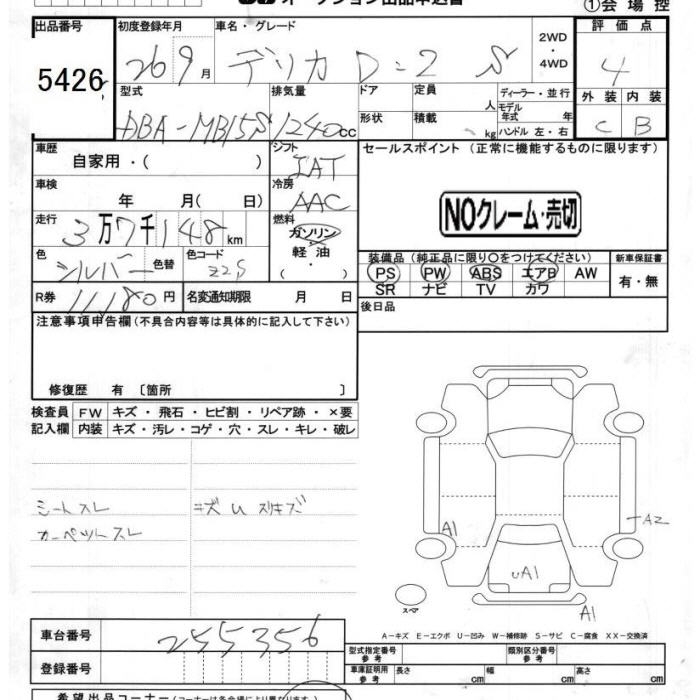 オークション出品申込書
①会場控
出品番号
初度登録年月
車名・グレード
2WD
・
4WD
評価点
5426
26 9月
デリカ D:2 S
4
型式
排気量
ドア
定員
ディーラー・並行
外装
内装
DBA-MB15S
1240cc
形状
積載
人
kg
モデル年式 年
ハンドル 左・右
C
B
車歴
シフト
セールスポイント (正常に機能するものに限ります)
自家用・( )
IAT
車検
冷房
年 月( 日)
AAC
NOクレーム・売切
走行
燃料
3万7千148km
ガソリン
軽油
・
( )
色
色替
色コード
シルバー
Z2S
装備品 (純正品に限り○をつけてください)
新車保証書
PS PW ABS エアB AW
有・無
SR ナビ TV カワ
R券
11,180円
名変通知期限 月 日
後日品
注意事項申告欄 (不具合内容等は具体的に記入して下さい)
修復歴 有 〔箇所 〕
検査員
FW
キズ・飛石・ヒビ割・リペア跡・×要
記入欄
内装
キズ・汚レ・コゲ・穴・スレ・キレ・破レ
シートスレ
キズU スリキズ
カーペットスレ
A1
A2
UA1
A1
スペア
A-キズ E-エクボ U-凹み W-補修跡 S-サビ C-腐食 XX-交換済
車台番号
255356
型式指定番号
参考
類別区分番号
参考
登録番号
車庫証明用
参考
長さ cm
幅 cm
高さ cm
希望出品コーナー